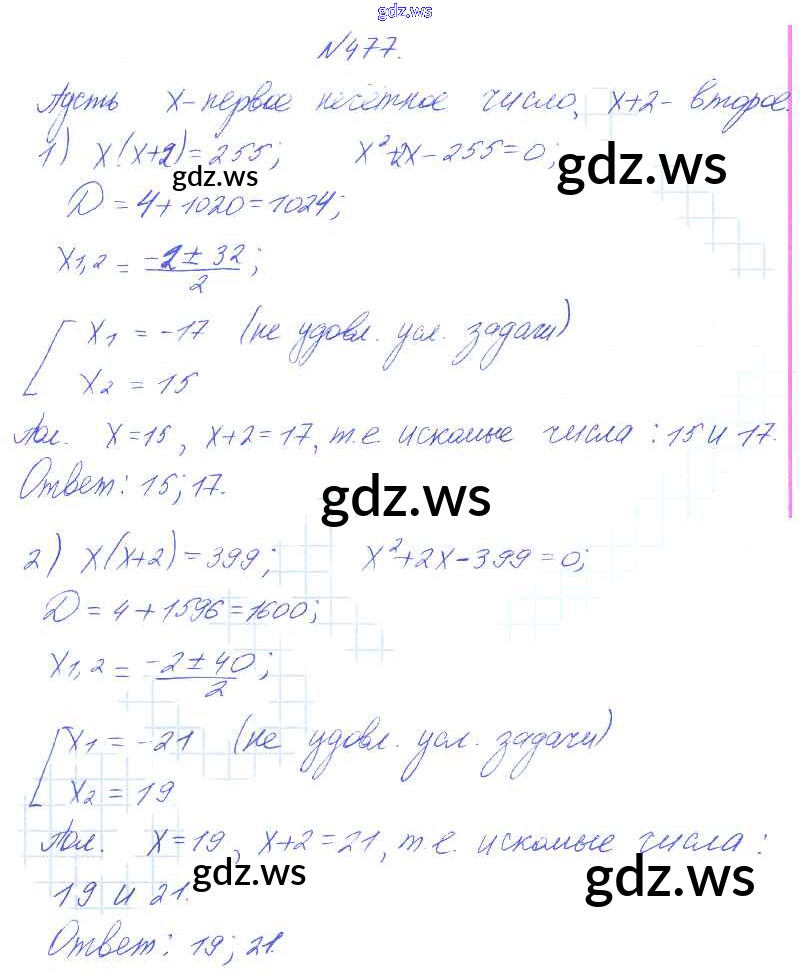 gdz.ws
№477.
Пусть x - первое несётное число, x+2 - второе.
1) x(x+2)=255; x²+2x-255=0;
gdz.ws gdz.ws
D=4+1020=1024;
x1,2 = (-2±32)/2;
[ x1 = -17 (не удовл. усл. задачи)
x2 = 15
x=15, x+2=17, т.е. искомые числа: 15 и 17.
Ответ: 15; 17.
gdz.ws
2) x(x+2)=399; x²+2x-399=0;
D=4+1596=1600;
x1,2 = (-2±40)/2;
[ x1 = -21 (не удовл. усл. задачи)
x2 = 19
x=19, x+2=21, т.е. искомые числа:
gdz.ws gdz.ws
19 и 21.
Ответ: 19; 21.